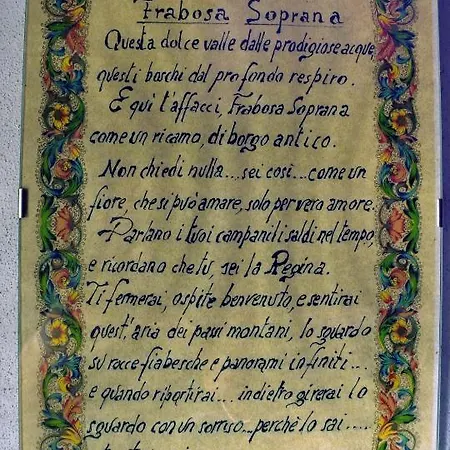 Frabosa Soprana
Questa dolce valle dalle prodigiose acque,
questi boschi dal profondo respiro.
E qui t'affacci, Frabosa Soprana
come un ricamo, di borgo antico.
Non chiedi nulla... sei così... come un
fiore, che si può amare, solo per vero amore.
Parlano i tuoi campanili saldi nel tempo,
e ricordano che tu, sei la Regina.
Ti fermerai, ospite benvenuto, e sentirai
quest'aria dei passi montani, lo sguardo
su rocce fiabesche e panorami infiniti...
e quando ripartirai... indietro girerai lo
sguardo con un sorriso... perchè lo sai....